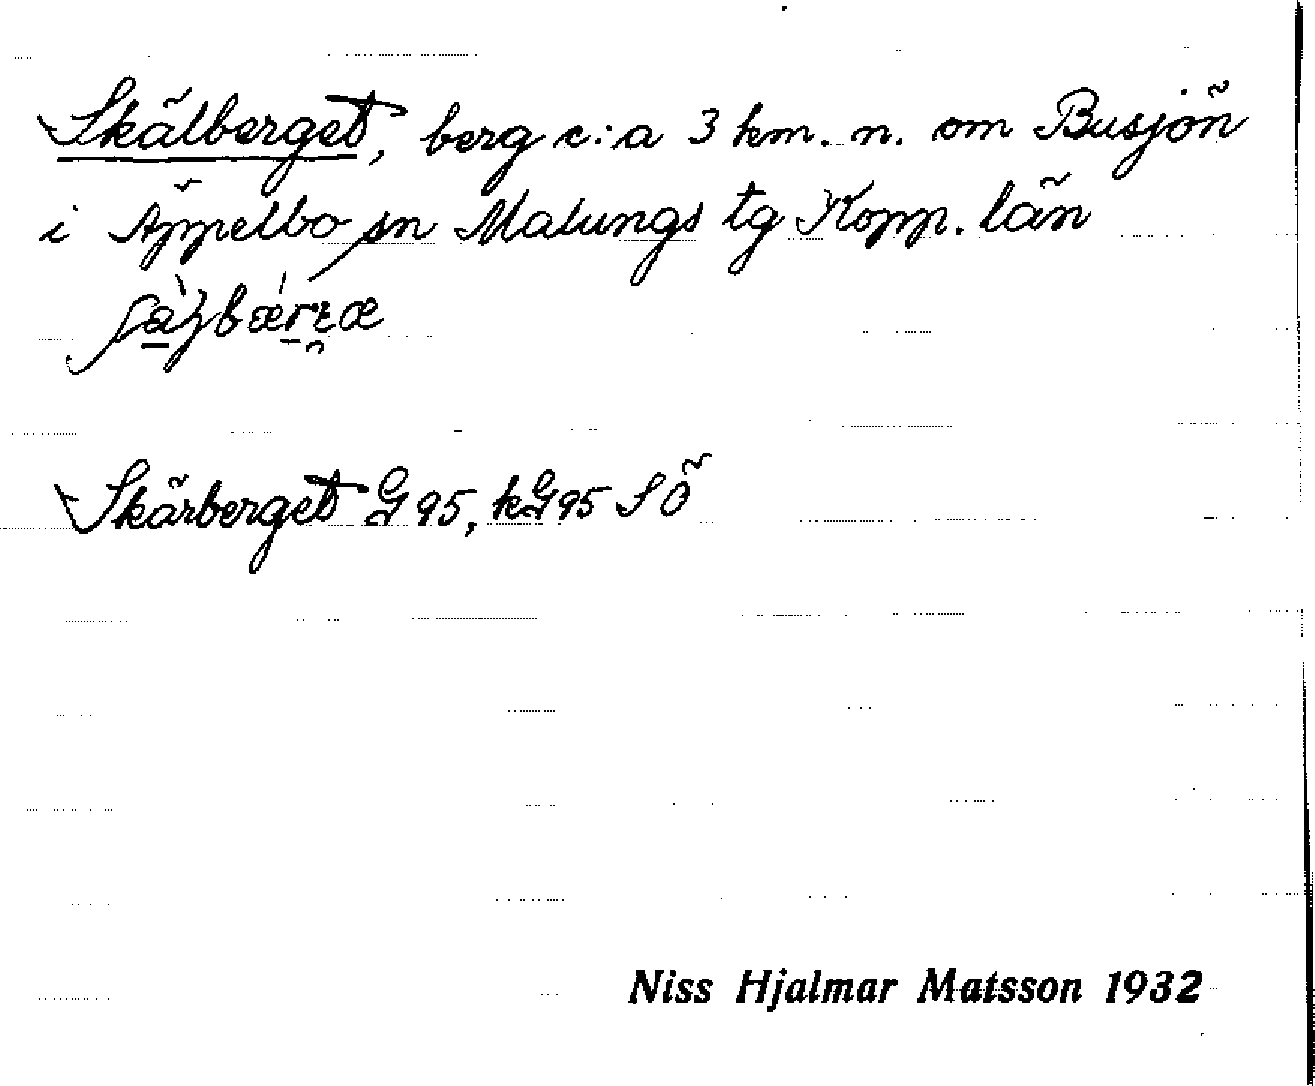 Skälberget, berg c:a 3 km. n. om Busjön
i Äppelbo sn Malungs tg Kopp. län
Skärberget G 95, kG95 SÖ
Niss Hjalmar Matsson 1932